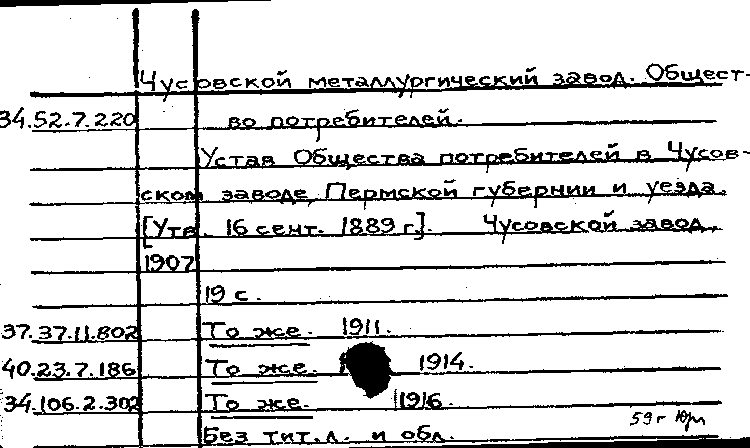 Чусовской металлургический завод. Общест-
34.52.7.220 во потребителей.
Устав Общества потребителей в Чусов-
ском заводе, Пермской губернии и уезда.
[Утв. 16 сент. 1889 г.]. Чусовской завод,
1907
19 с.
37.37.11.802 То же. 1911.
40.23.7.186 То же. 1914.
34.106.2.302 То же. 1916.
Без тит. л. и обл.
59 г